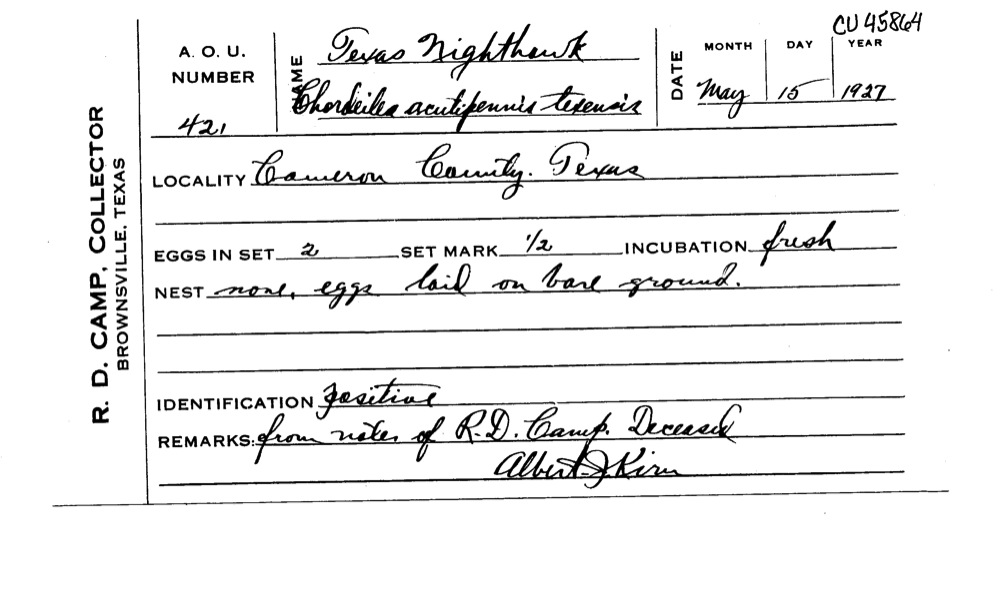 CU 45864
R. D. CAMP, COLLECTOR
BROWNSVILLE, TEXAS
A. O. U.
NUMBER
421
NAME Texas Nighthawk
Chordeiles acutipennis texensis
DATE
MONTH DAY YEAR
May 15 1927
LOCALITY Cameron County. Texas
EGGS IN SET 2 SET MARK 1/2 INCUBATION fresh
NEST none, eggs laid on bare ground.
IDENTIFICATION positive
REMARKS: from notes of R.D. Camp. Deceased
Albert J. Kirn